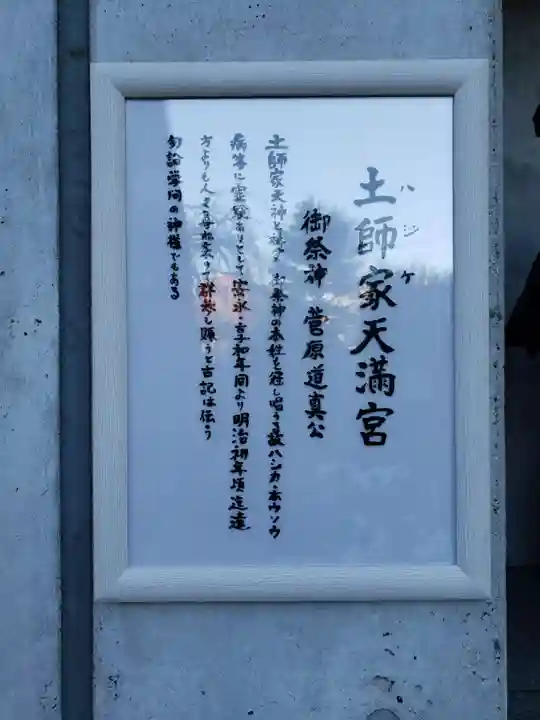 土師家天満宮
ハシケ
御祭神 菅原道真公
土師家天神と 御祭神の本姓を 唱うる故ハシカ・ホウソウ
病等に霊験ありとして安永・ 年間より明治初年頃迄遠
方よりも人々 群参し賑うと古記は伝う
勿論学問の神様でもある